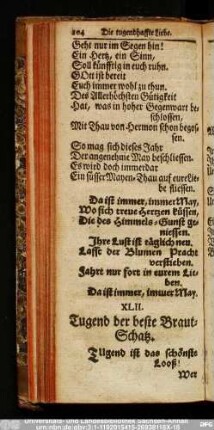 204 Die tugendhaffte Liebe.
Geht nur im Segen hin!
Ein Hertz, ein Sinn,
Soll künfftig in euch ruhn.
GOtt ist bereit
Euch immer wohl zu thun.
Des Allerhöchsten Gütigkeit
Hat, was in hoher Gegenwart be-
schlossen,
Mit Thau von Hermon schon begos-
sen.
So mag sich dieses Jahr
Der angenehme May beschliessen.
Es wird doch immerdar
Ein süsser Mayen-Thau auf eure Lie-
be fliessen.
Da ist immer, immer May,
Wo sich treue Hertzen küssen,
Die des Himmels-Gunst ge-
niessen.
Ihre Lust ist täglich neu.
Lasse der Blumen Pracht
verstieben.
Fahrt nur fort in eurem Lie-
ben.
Da ist immer, immer May.
XLII.
Tugend der beste Braut-
Schatz.
TUgend ist das schönste
Looß!
Wer
Universitäts- und Landesbibliothek Sachsen-Anhalt
urn:nbn:de:gbv:3:1-1192015415-26928118X-16